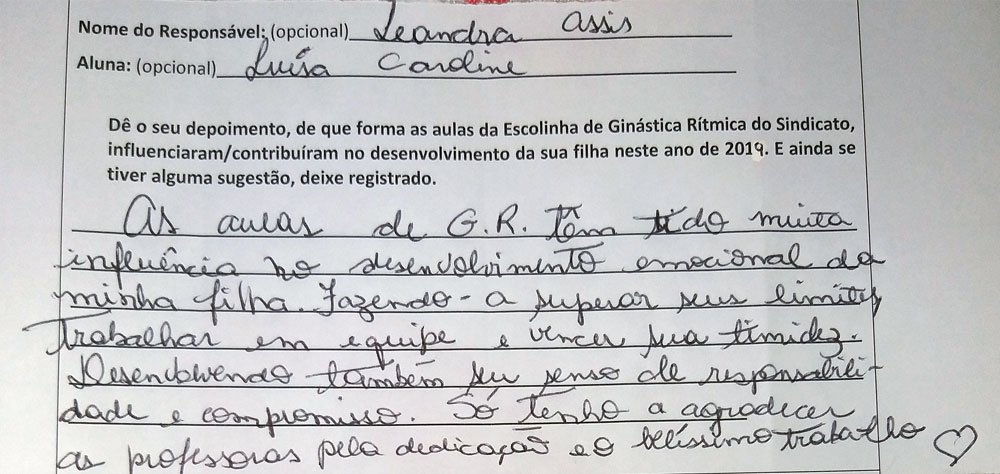 Nome do Responsável: (opcional) Leandra Assis
Aluna: (opcional) Luísa Caroline
Dê o seu depoimento, de que forma as aulas da Escolinha de Ginástica Rítmica do Sindicato,
influenciaram/contribuíram no desenvolvimento da sua filha neste ano de 2019. E ainda se
tiver alguma sugestão, deixe registrado.
As aulas de G.R. têm tido muita
influência no desenvolvimento emocional da
minha filha. Fazendo-a superar seus limites,
trabalhar em equipe e vencer sua timidez.
Desenvolvendo também seu senso de responsabili-
dade e compromisso. Só tenho a agradecer
as professoras pela dedicação e o belíssimo trabalho